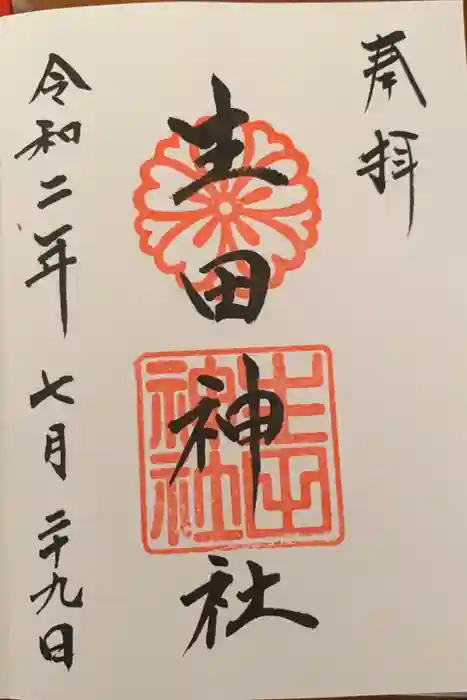 奉拝
生田神社
生田
神社
令和二年七月二十九日